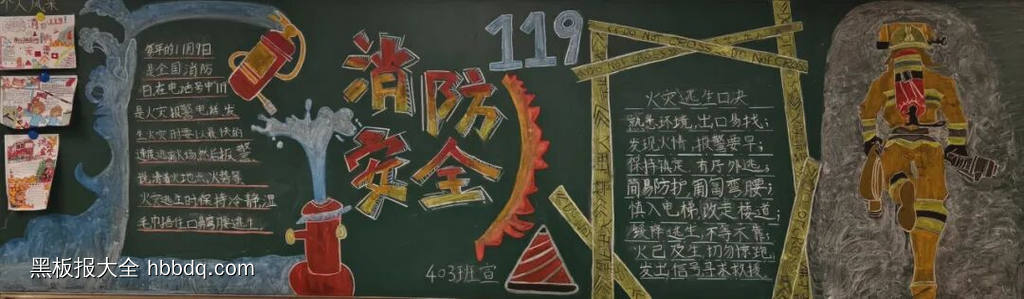 个人风采
每年的11月9日
是全国消防
日在电话号中119
是火灾报警电话发
生火灾时要以最快的
速度逃离火场然后报警
说清着火地点,火势等
火灾逃生时保持冷静湿
毛巾捂住口鼻腰逃生。
消防
安全
119
DO NOT CROSS
火灾逃生口决
熟悉环境,出口易找;
发现火情,报警要早;
保持镇定,有序外逃;
简易防护,匍匐弯腰;
慎入电梯,改走楼道;
缓降逃生,不等不靠;
火已及生,切勿惊跑,
发出信号寻求救援
403班宣
黑板报大全 hbbdq.com